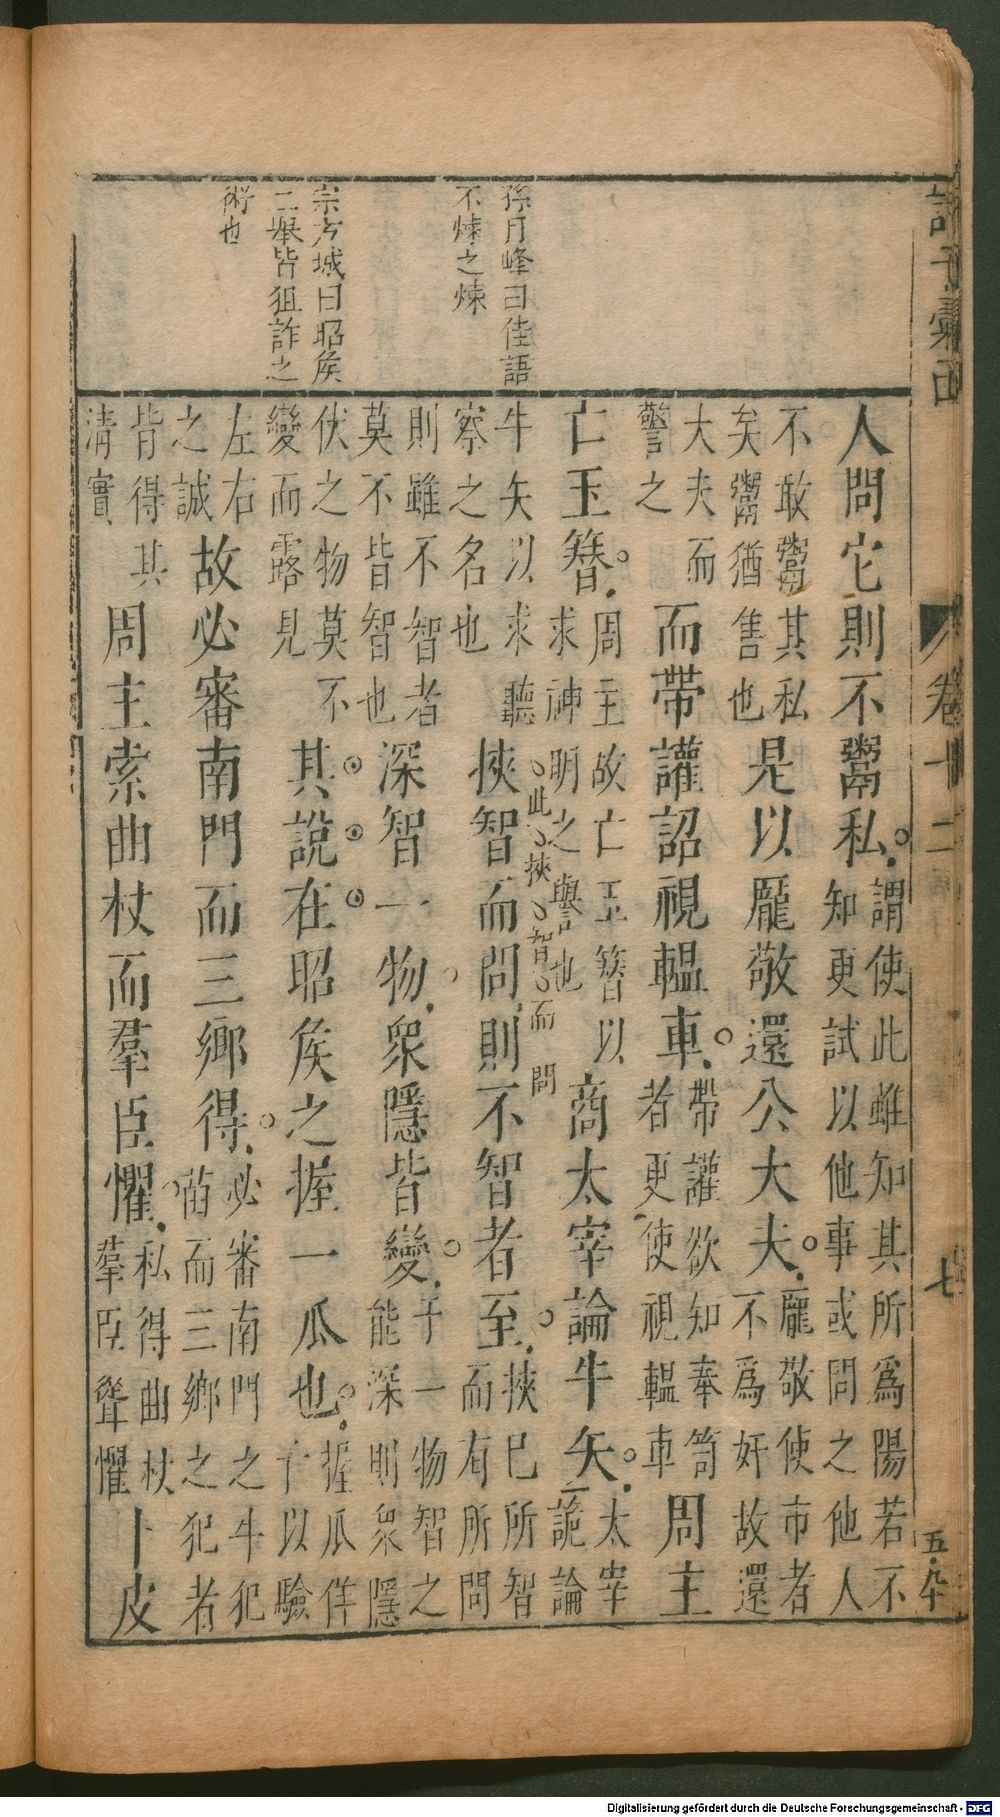 諸子彙函 卷十二 七 五九十
孫月峰曰佳語
不煉之煉
宗方城曰昭矦
二舉皆狙詐之
術也
人問它則不鬻私。謂使此雖知其所爲陽若不知更試以他事或問之他人
不敢鬻其私矣鬻猶售也是以龎敬還公大夫。龎敬使市者不爲奸故還
大夫而警之而帶讙詔視轀車。帶讙欲知奉笥者更使視轀車周主
亡玉簪。周主故亡玉簪以求神明之譽也商太宰論牛矢。太宰詭論
牛矢以求聽察之名也挾智而問則不智者至。挾已所智而有所問
此挾智而問
則雖不智者莫不皆智也深智一物衆隱皆變。于一物智之能深則衆隱
伏之物莫不變而露見其說在昭矦之握一瓜也。握瓜佯亡以驗
左右之誠故必審南門而三鄉得。必審南門之牛犯苗而三鄉之犯者
皆得其清實周主索曲杖而羣臣懼。私得曲杖羣臣聳懼卜皮
Digitalisierung gefördert durch die Deutsche Forschungsgemeinschaft - DFG